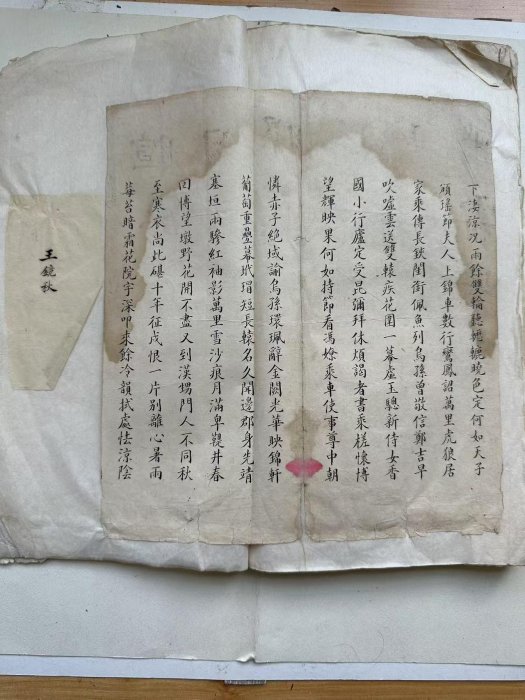 下淒涼况雨餘雙輪聽轆轆曉色定何如天子
頒瑤節夫人上錦車數行鸞鳳詔萬里虎狼居
家乘傳長鋏閨銜佩魚列烏孫曾敬信鄭吉早
吹噓雲送雙轅疾花圍一幕虛玉驄新侍女香
國小行廬定受昆彌拜休煩謁者書乘槎懷博
望輝映果何如持節看馮嫽乘車使事尊中朝
憐赤子絕域諭烏孫環珮辭金闕光華映錦軒
葡萄重疊幕玳瑁短長轅名久聞邊郡身先靖
塞垣兩驂紅袖影萬里雪沙痕月滿皐鞮井春
回博望墩野花開不盡又到漢甥門人不同秋
至寒衣尚此碪十年征戍恨一片別離心暑雨
莓苔暗霜花院宇深叩來餘冷韻拭處怯涼陰
王鏡秋